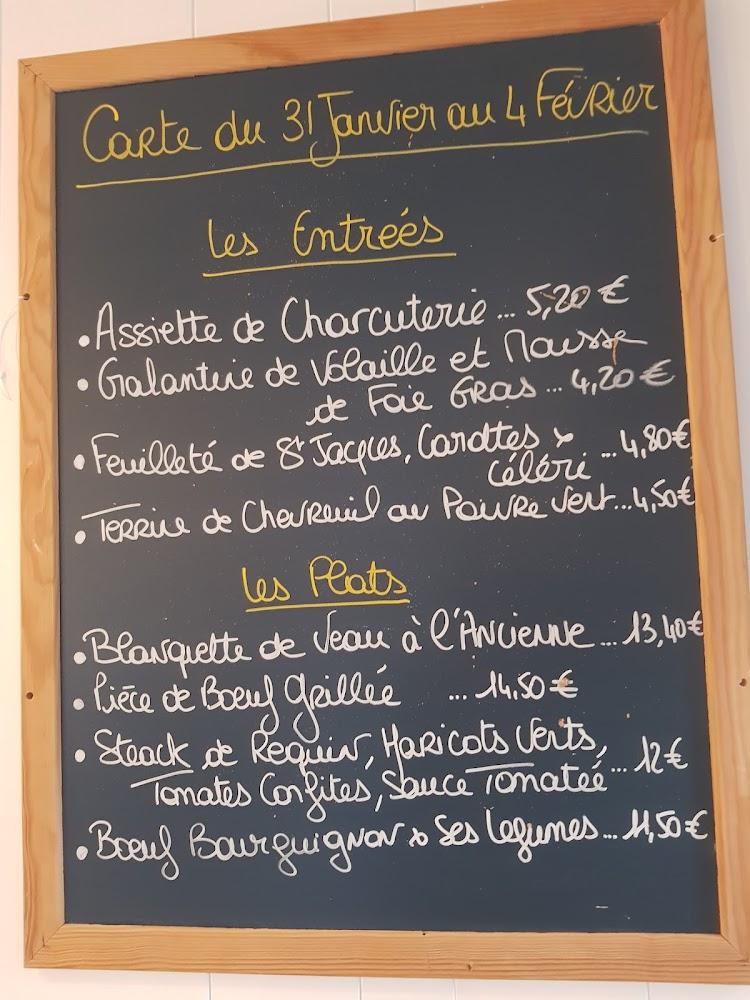 Carte du 31 Janvier au 4 Février
les Entrées
• Assiette de Charcuterie... 5,20 €
• Galantine de Volaille et Mousse
de Foie Gras... 4,20 €
• Feuilleté de St Jacques, Carottes &
céléri ...4,80€
• Terrine de Chevreuil au Poivre Vert...4,50€
les Plats
• Blanquette de Veau à l'Ancienne... 13,40€
• Pièce de Boeuf Grillée ... 14,50€
• Steack de Requin, Haricots Verts,
Tomates Confites, Sauce Tomatée... 12€
• Boeuf Bourguignon & Ses Legumes... 11,50€